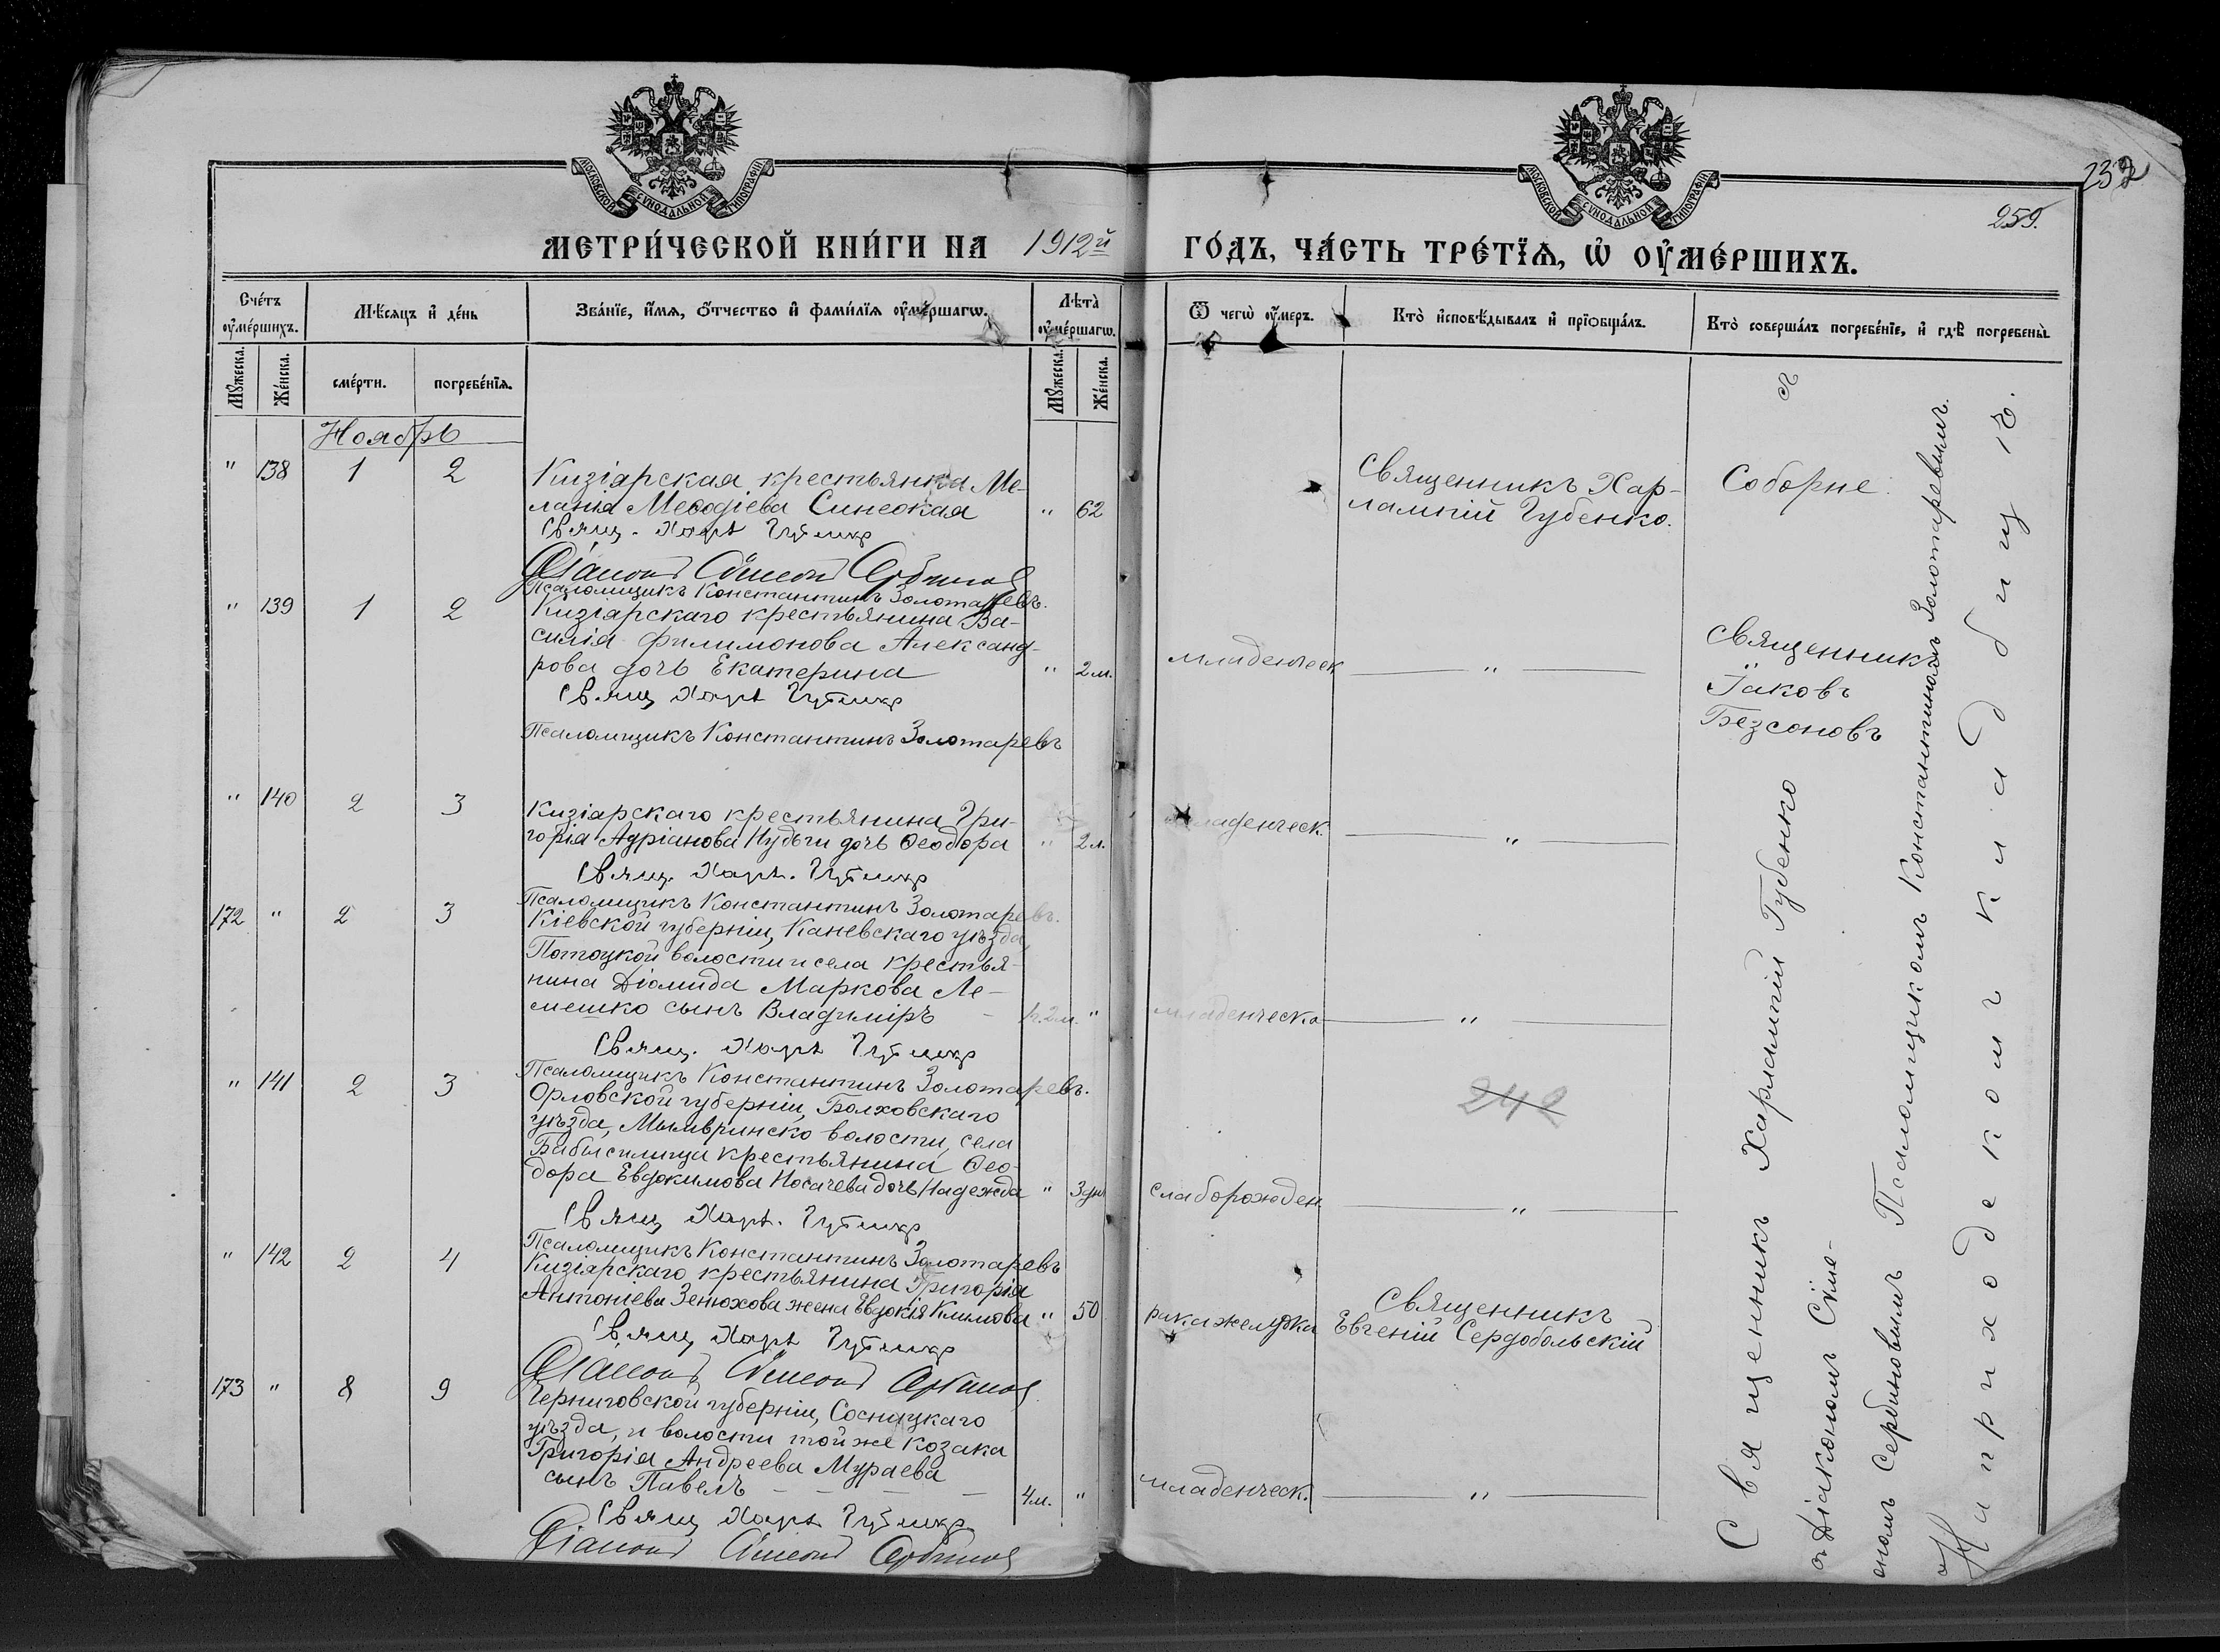 МОСКОВСКОЙ СУНОДАЛЬНОЙ ТИПОГРАФІИ
МОСКОВСКОЙ СУНОДАЛЬНОЙ ТИПОГРАФІИ
232
259.
МЕТРИ́ЧЕСКОЙ КНИ́ГИ НА 1912й ГО́ДЪ, ЧА́СТЬ ТРЕ́ТЇѦ, Ѡ҆ ОУ҆МЕ́РШИХЪ.
Сче́тъ оу҆ме́ршихъ.
Мѣ́сяцъ и҆ де́нь
Зва́нїе, и҆́мѧ, ѻ҆́тчество и҆ фами́лїѧ оу҆ме́ршагѡ.
Лѣта̀ оу҆ме́ршагѡ.
Ѿ чегѡ̀ оу҆́меръ.
Кто̀ и҆сповѣ́дывалъ и҆ прїѻбща́лъ.
Кто̀ соверша́лъ погребе́нїе, и҆ гдѣ̀ погребены̀.
Мꙋ́жеска.
Же́нска.
сме́рти.
погребе́нїѧ.
Мꙋ́жеска.
Же́нска.
Ноябрь
" 138 1 2
Кизіарская крестьянка Ме-
ланія Меѳодіева Синеокая " 62
Свящ. Харл. Губенко
Діаконъ Симеонъ Сербинов
Священникъ Хар-
лампій Губенко.
Соборне
Псаломщикъ Константинъ Золотаревъ.
" 139 1 2
Кизіарскаго крестьянина Ва-
силія Филимонова Александ-
рова дочь Екатерина " 2 м.
Свящ Харл Губенко
Псаломщикъ Константинъ Золотаревъ
младенческ "
Священникъ
Іаковъ
Безсоновъ
" 140 2 3
Кизіарскаго крестьянина Гри-
горія Адріанова Нудьги дочь Ѳеодора " 2 л.
Свящ. Харл. Губенко
Псаломщикъ Константинъ Золотаревъ.
младенческ. "
172 " 2 3
Кіевской губерніи, Каневскаго уѣзда,
Потоцкой волости и села крестья-
нина Діомида Маркова Ле-
мешко сынъ Владиміръ 2 м. "
Свящ. Харл Губенко
Псаломщикъ Константинъ Золотаревъ.
младенческа "
" 141 2 3
Орловской губерніи, Болховскаго
уѣзда, Мымринско волости, села
крестьянина Ѳео-
дора Евдокимова Носачева дочь Надежда " 3 дн
Свящ Харл. Губенко
Псаломщикъ Константинъ Золотаревъ
242
слаборожден "
" 142 2 4
Кизіарскаго крестьянина Григорія
Антоніева Зенюхова жена Евдокія Климова " 50
Свящ Харл Губенко
Діаконъ Симеонъ Сербинов
рака желудка
Священникъ
Евгеній Сердобольскій
173 " 8 9
Черниговской губерніи, Сосницкаго
уѣзда, и волости той же козака
Григорія Андреева Мураева
сынъ Павелъ 4 м. "
Свящ Харл Губенко
Діаконъ Симеонъ Сербинов
младенческ. "
Священникъ Харлампій Губенко
съ Діакономъ Симе-
ономъ Сербиновымъ Псаломщикомъ Константиномъ Золотаревымъ.
На приходскомъ кладбищѣ.